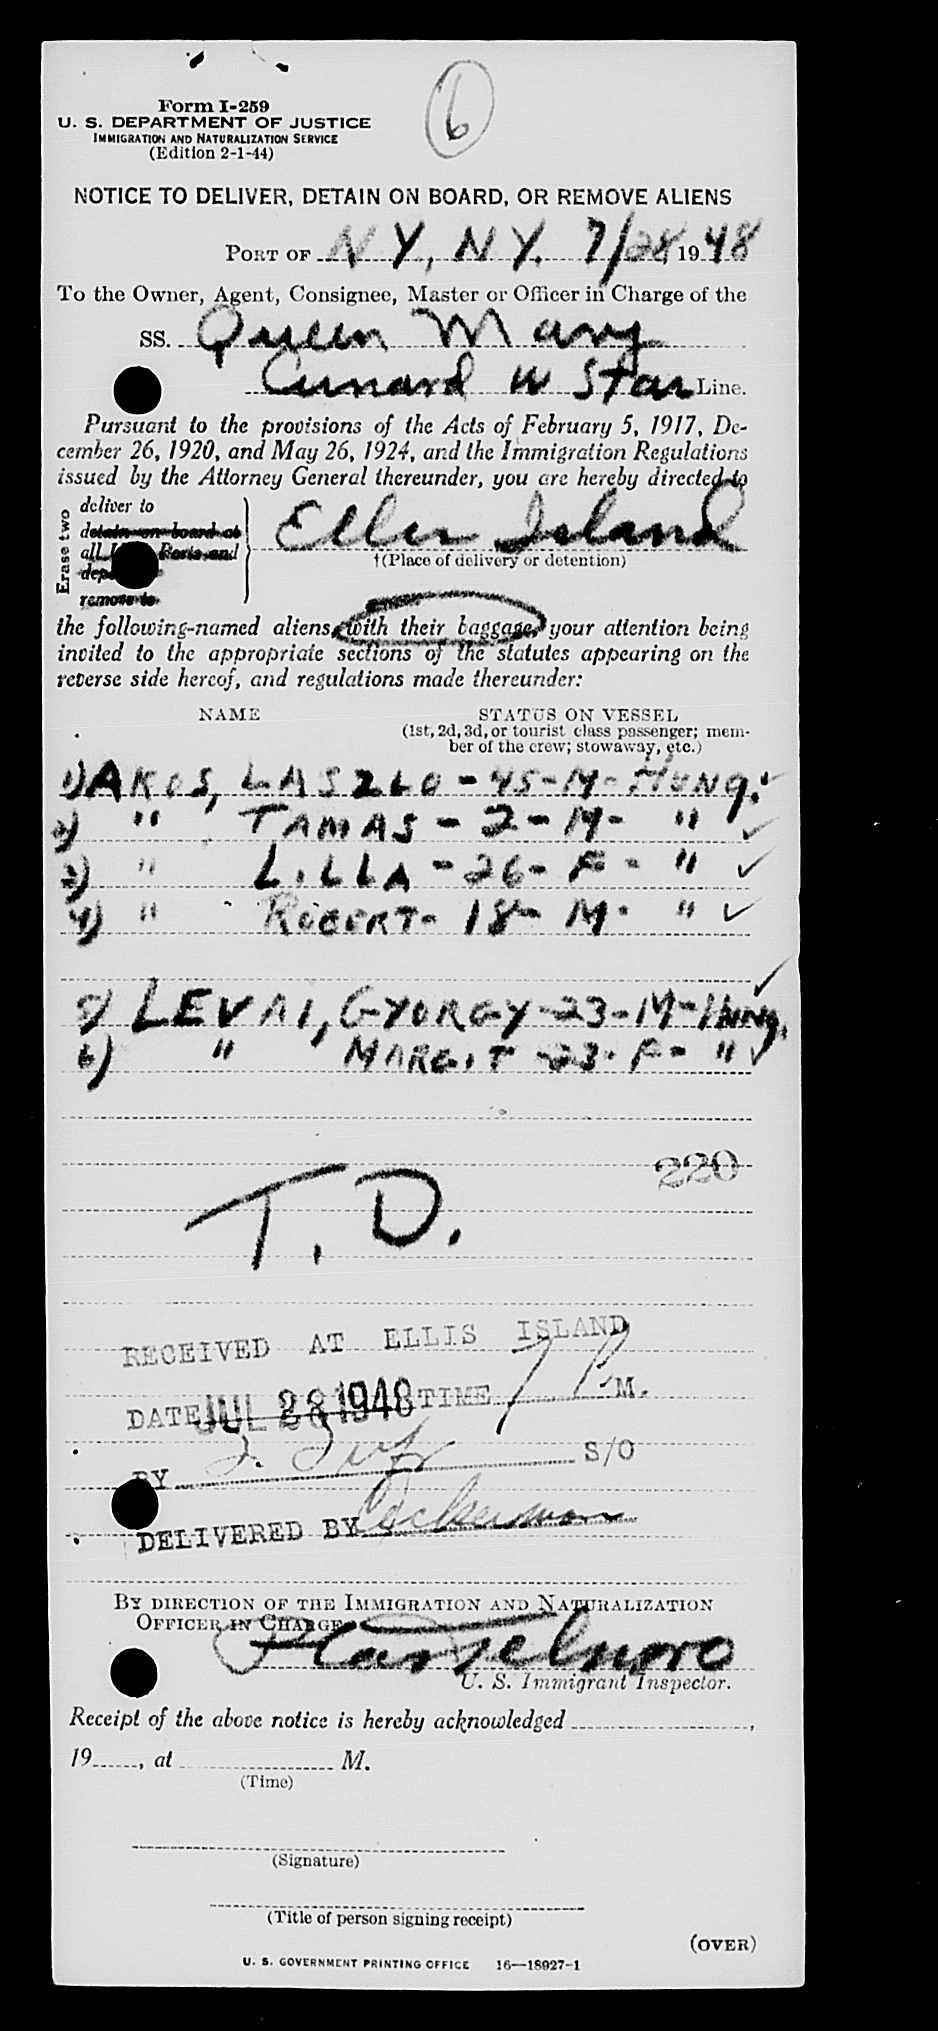 6
Form I-259
U. S. DEPARTMENT OF JUSTICE
IMMIGRATION AND NATURALIZATION SERVICE
(Edition 2-1-44)
NOTICE TO DELIVER, DETAIN ON BOARD, OR REMOVE ALIENS
PORT OF N Y., N Y. 7/28 1948
To the Owner, Agent, Consignee, Master or Officer in Charge of the
SS. Queen Mary
Cunard W Star Line.
Pursuant to the provisions of the Acts of February 5, 1917, De-
cember 26, 1920, and May 26, 1924, and the Immigration Regulations
issued by the Attorney General thereunder, you are hereby directed to
Erase two
deliver to
detain on board at
all Ports and
remove to
Ellis Island
†(Place of delivery or detention)
the following-named aliens, with their baggage, your attention being
invited to the appropriate sections of the statutes appearing on the
reverse side hereof, and regulations made thereunder:
NAME STATUS ON VESSEL
(1st, 2d, 3d, or tourist class passenger; mem-
ber of the crew; stowaway, etc.)
1) AKOS, LASZLO - 45 - M - HUNg. ✓
2) " TAMAS - 2 - M - " ✓
3) " LILLA - 26 - F - " ✓
4) " ROBERT - 18 - M - " ✓
5) LEVAI, GYORGY - 23 - M - HUNg. ✓
6) " MARGIT - 23 - F - " ✓
220
T. D.
RECEIVED AT ELLIS ISLAND
DATE JUL 28 1948 TIME 7 P. M.
BY J. S/O
DELIVERED BY
BY DIRECTION OF THE IMMIGRATION AND NATURALIZATION
OFFICER IN CHARGE
U. S. Immigrant Inspector.
Receipt of the above notice is hereby acknowledged ,
19 , at M.
(Time)
(Signature)
(Title of person signing receipt)
(OVER)
U. S. GOVERNMENT PRINTING OFFICE 16—18927-1